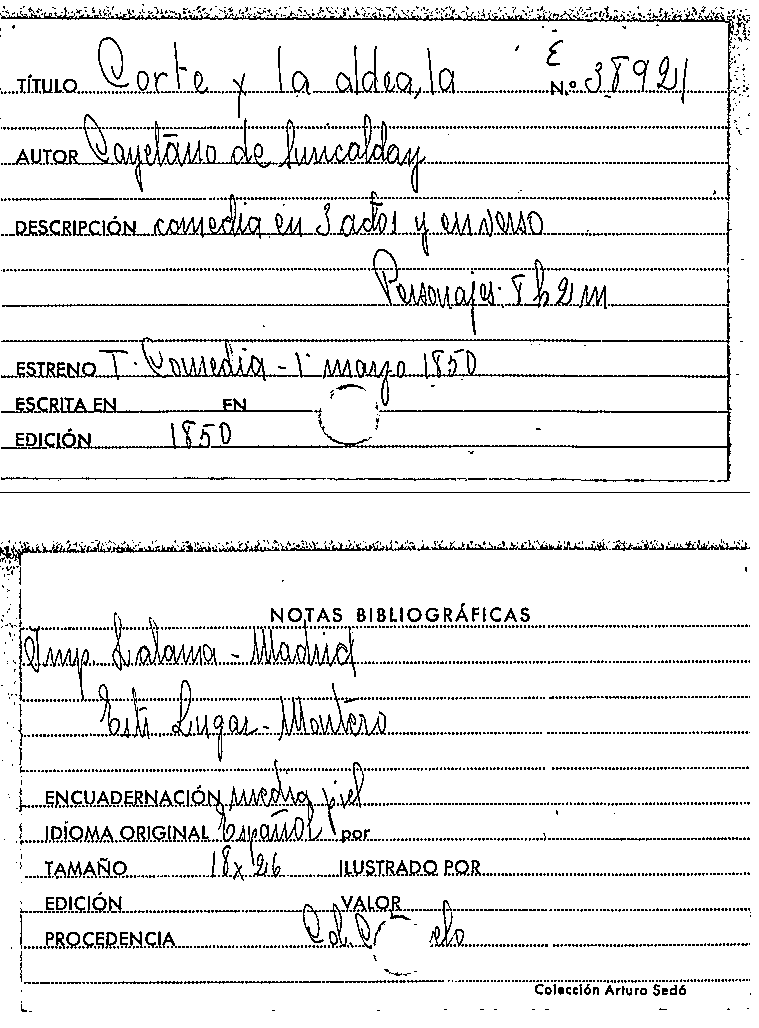 TÍTULO Corte y la aldea, la E N.º 38921
AUTOR Cayetano de Suricalday
DESCRIPCIÓN comedia en 3 actos y en verso
Personajes: 8 h 2 m
ESTRENO T. Comedia - 1º marzo 1850
ESCRITA EN EN
EDICIÓN 1850
NOTAS BIBLIOGRÁFICAS
Imp. Lalama - Madrid
Lugar - Montero
ENCUADERNACIÓN media piel
IDIOMA ORIGINAL Español por
TAMAÑO 18 x 26 ILUSTRADO POR
EDICIÓN VALOR
PROCEDENCIA Col.
Colección Arturo Sedó